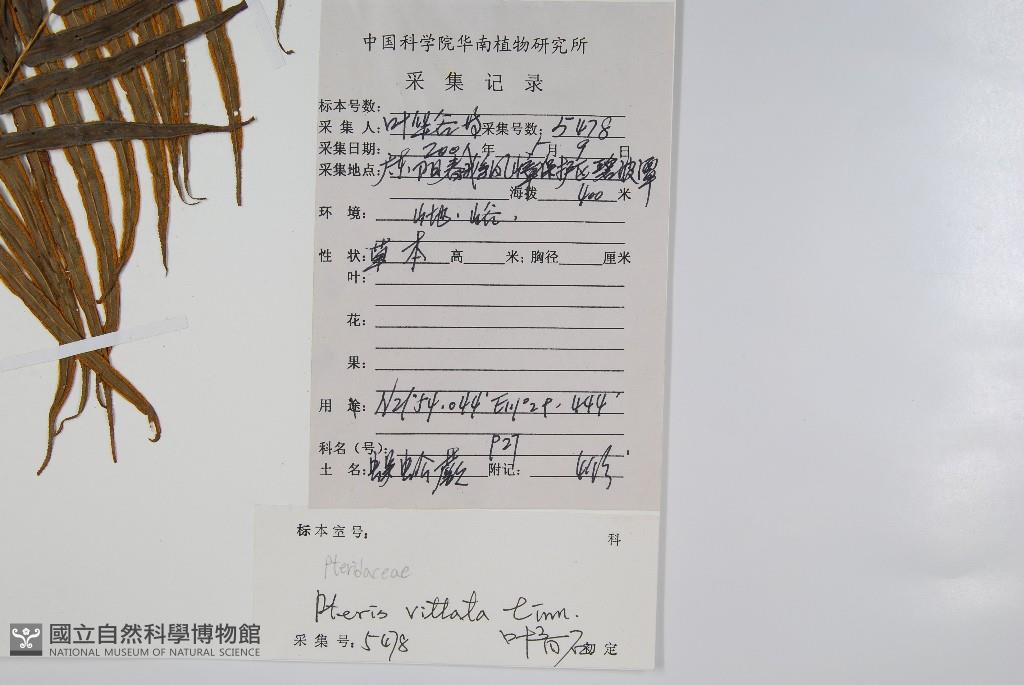 中国科学院华南植物研究所
采 集 记 录
标本号数:
采 集 人: 叶华谷 采集号数: 5478
采集日期: 年 月 9 日
采集地点: 广东阳春 保护区
海拨 400 米
环 境: 山地.山谷.
性 状: 草本 高 米; 胸径 厘米
叶:
花:
果:
用 途: N21°54.044' E111°29.444'
科名(号): P27
土 名: 蜈蚣蕨 附记:
标 本 室 号:
科
Pteridaceae
Pteris vittata Linn.
采 集 号: 5478 定
國立自然科學博物館
NATIONAL MUSEUM OF NATURAL SCIENCE